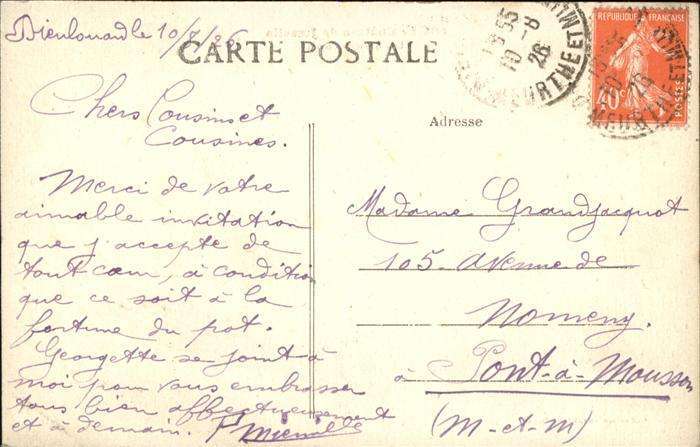 Dieulouard le 10/8/26
CARTE POSTALE
Chers Cousins et
Cousines.
Merci de votre
aimable invitation
que j'accepte de
tout cœur, à condition
que ce soit à la
fortune du pot.
Georgette se joint à
moi pour vous embrasser
tous bien affectueusement
et à demain.
Adresse
Madame Grandjacquot
105 Avenue de
Nomeny.
à Pont-à-Mousson
(M-et-M)
REPUBLIQUE FRANÇAISE
40c
POSTES
18 55
10 - 8
26
MEURTHE ET M